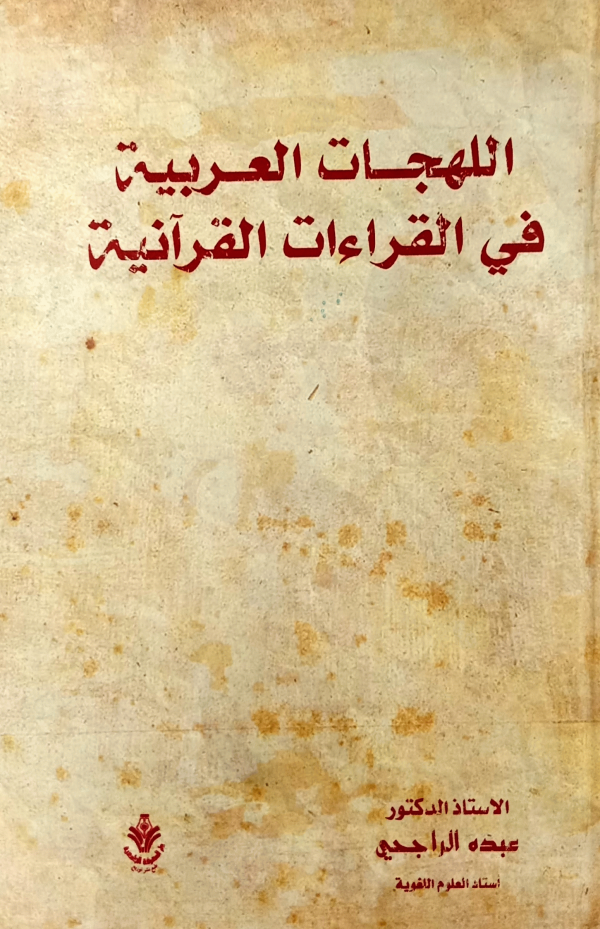 اللهجات العربية
في القراءات القرآنية
الاستاذ الدكتور
عبده الراجحي
أستاذ العلوم اللغوية